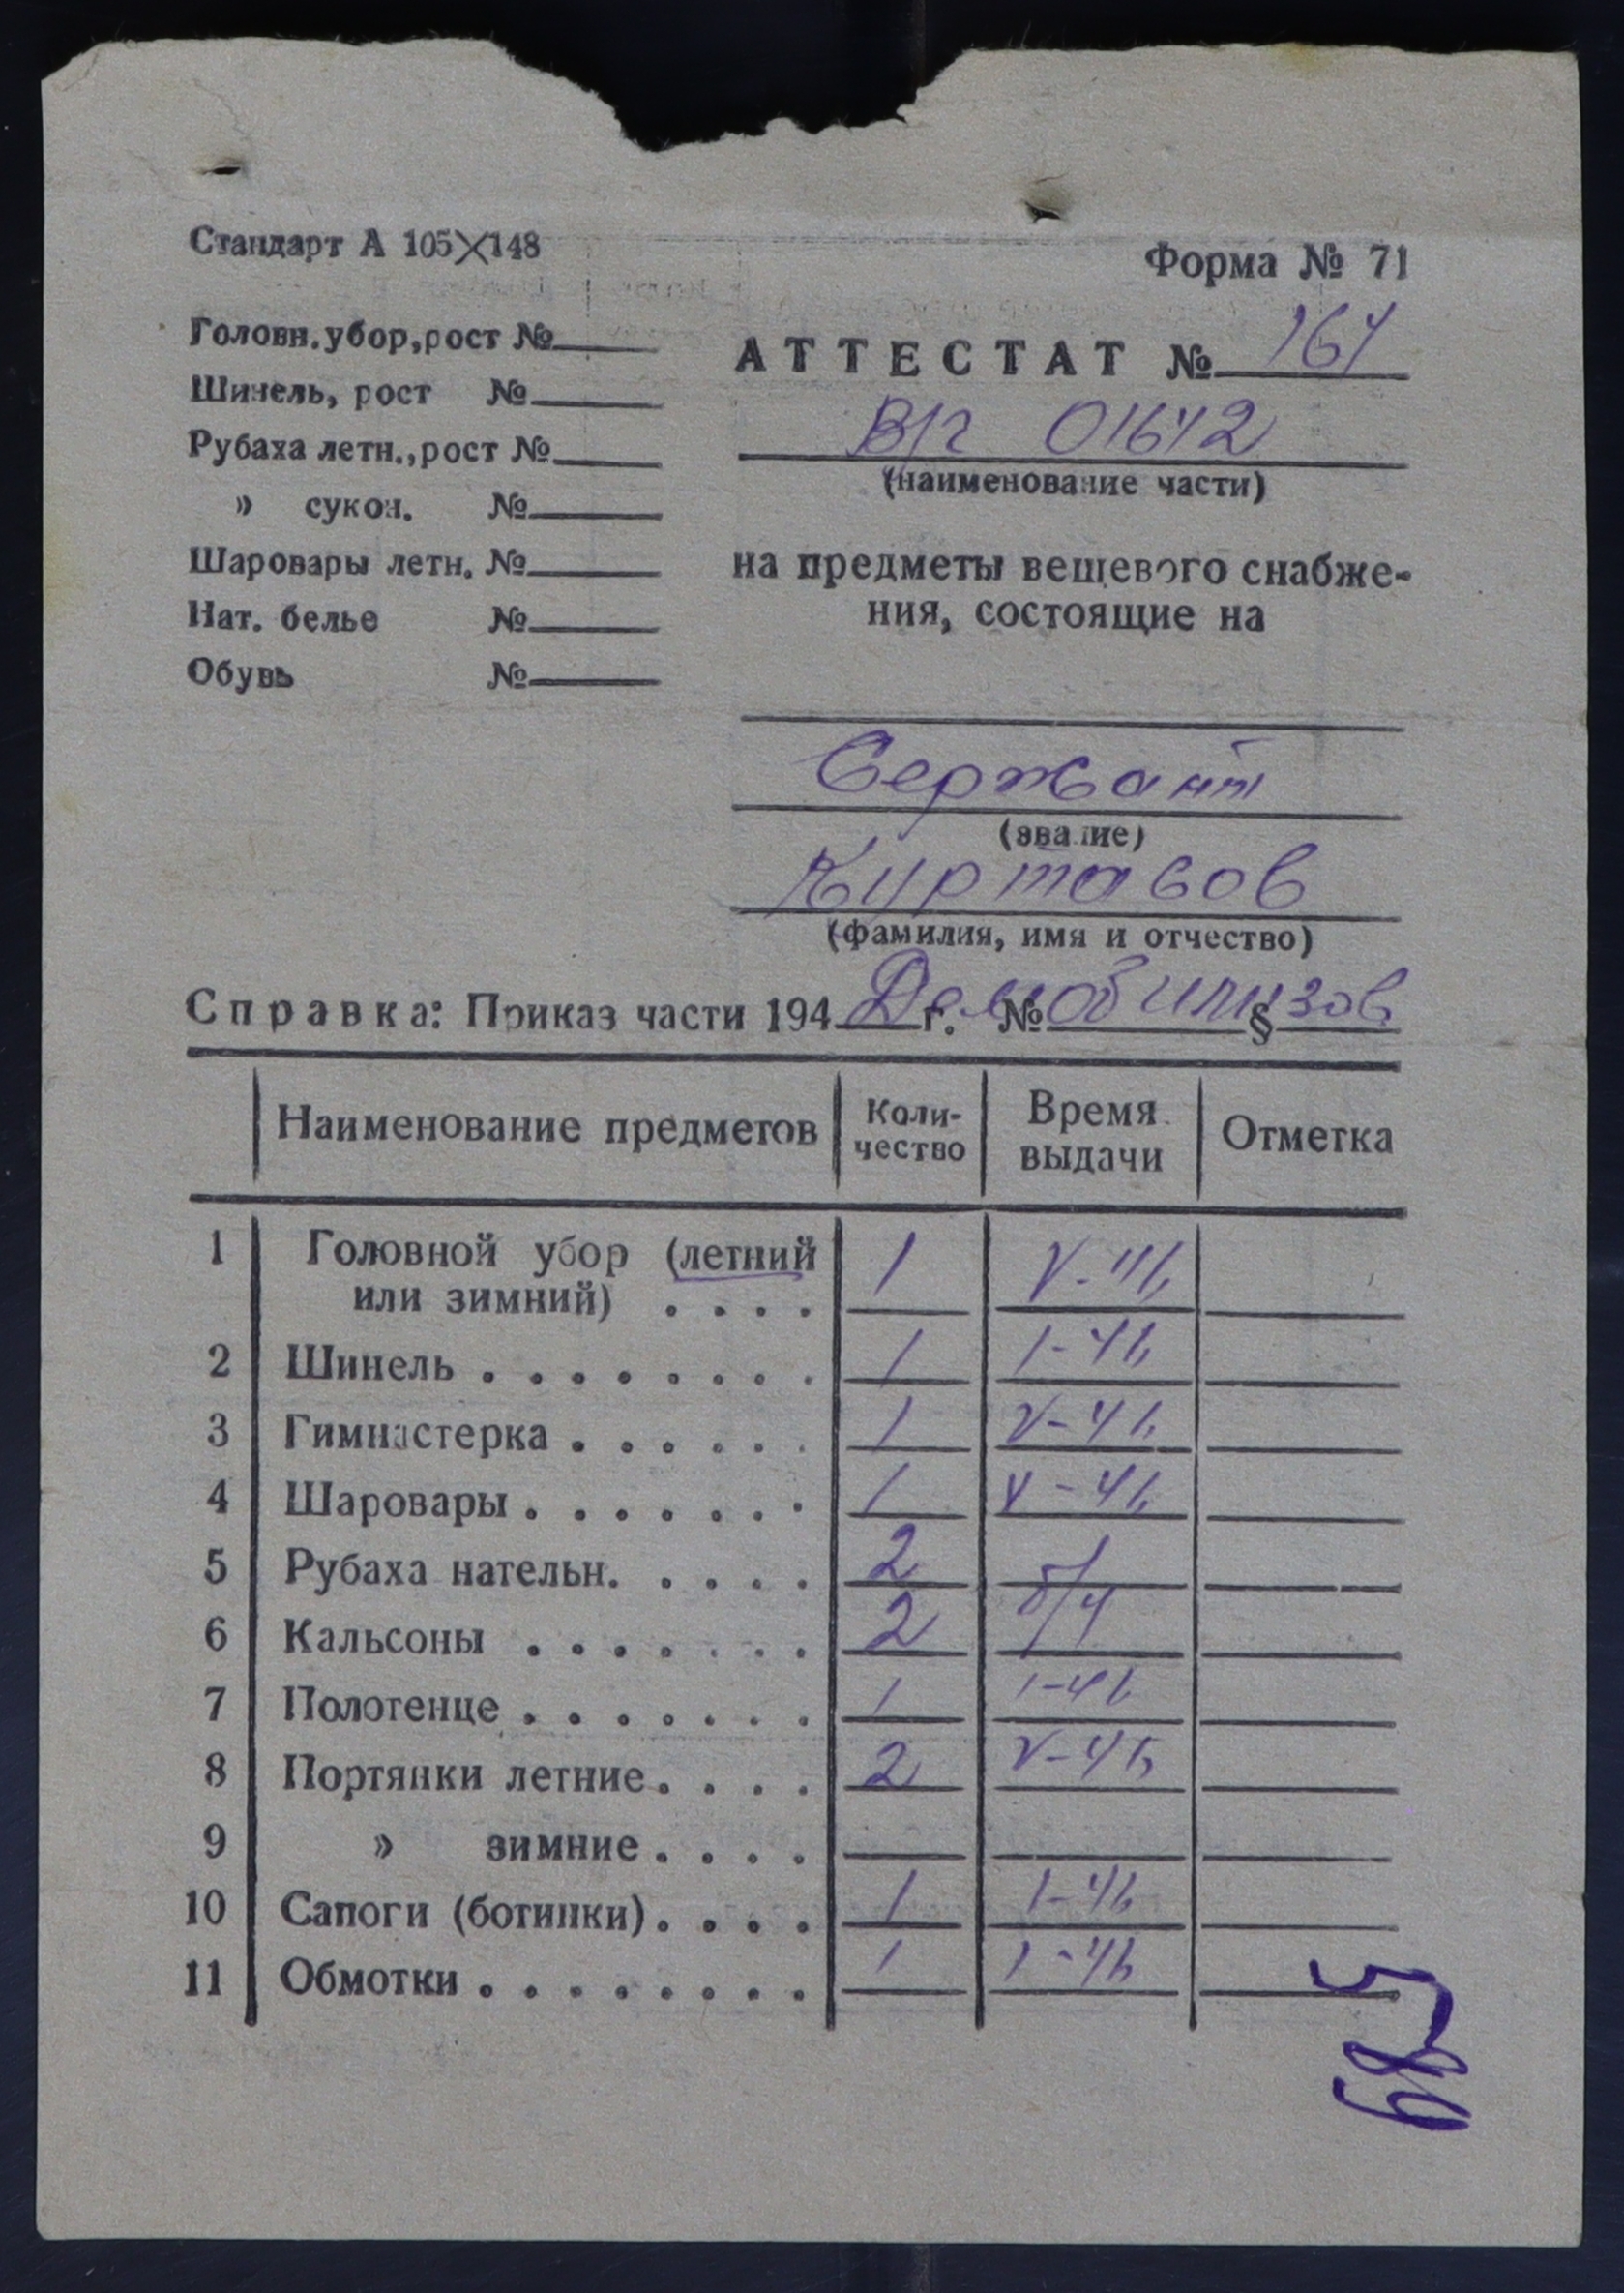 Стандарт А 105×148
Форма № 71
Головн. убор, рост №
Шинель, рост №
Рубаха летн., рост №
» сукон. №
Шаровары летн. №
Нат. белье №
Обувь №
АТТЕСТАТ № 164
В/г 01642
(наименование части)
на предметы вещевого снабже-
ния, состоящие на
Сержант
(звание)
Куртасов
(фамилия, имя и отчество)
Справка: Приказ части 194 г. № § Демобилизов
Наименование предметов Коли-чество Время выдачи Отметка
1 Головной убор (летний 1 V-46
или зимний) . . . .
2 Шинель . . . . . . . . 1 1-46
3 Гимнастерка . . . . . . 1 V-46
4 Шаровары . . . . . . . 1 V-46
5 Рубаха нательн. . . . . 2
6 Кальсоны . . . . . . . 2 б/ч
7 Полотенце . . . . . . . 1 1-46
8 Портянки летние . . . . 2 V-46
9 » зимние . . . .
10 Сапоги (ботинки) . . . . 1 1-46
11 Обмотки . . . . . . . . 1 1-46